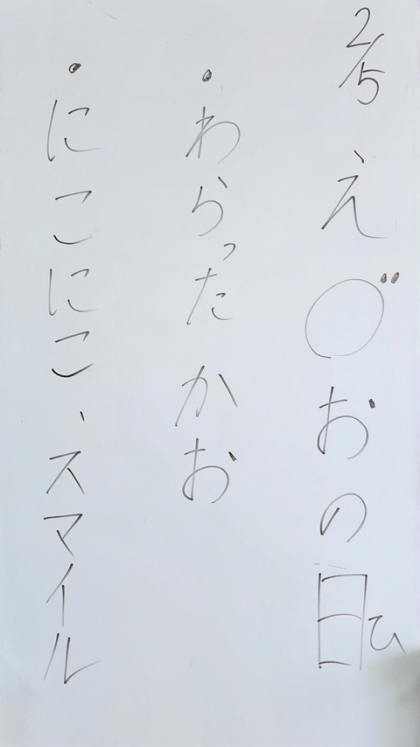 2/5 え〇゛おの日ひ
・わらったかお
・にこにこ、スマイル